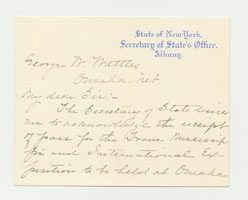 State of New York.
Secretary of State's Office.
Albany.
George W. Wattles
Omaha Neb
My dear Sir:-
The Secretary of State desires
me to acknowledge the receipt
of pass for the Trans. Mississip
pi and International Ex-
position to be held at Omaha